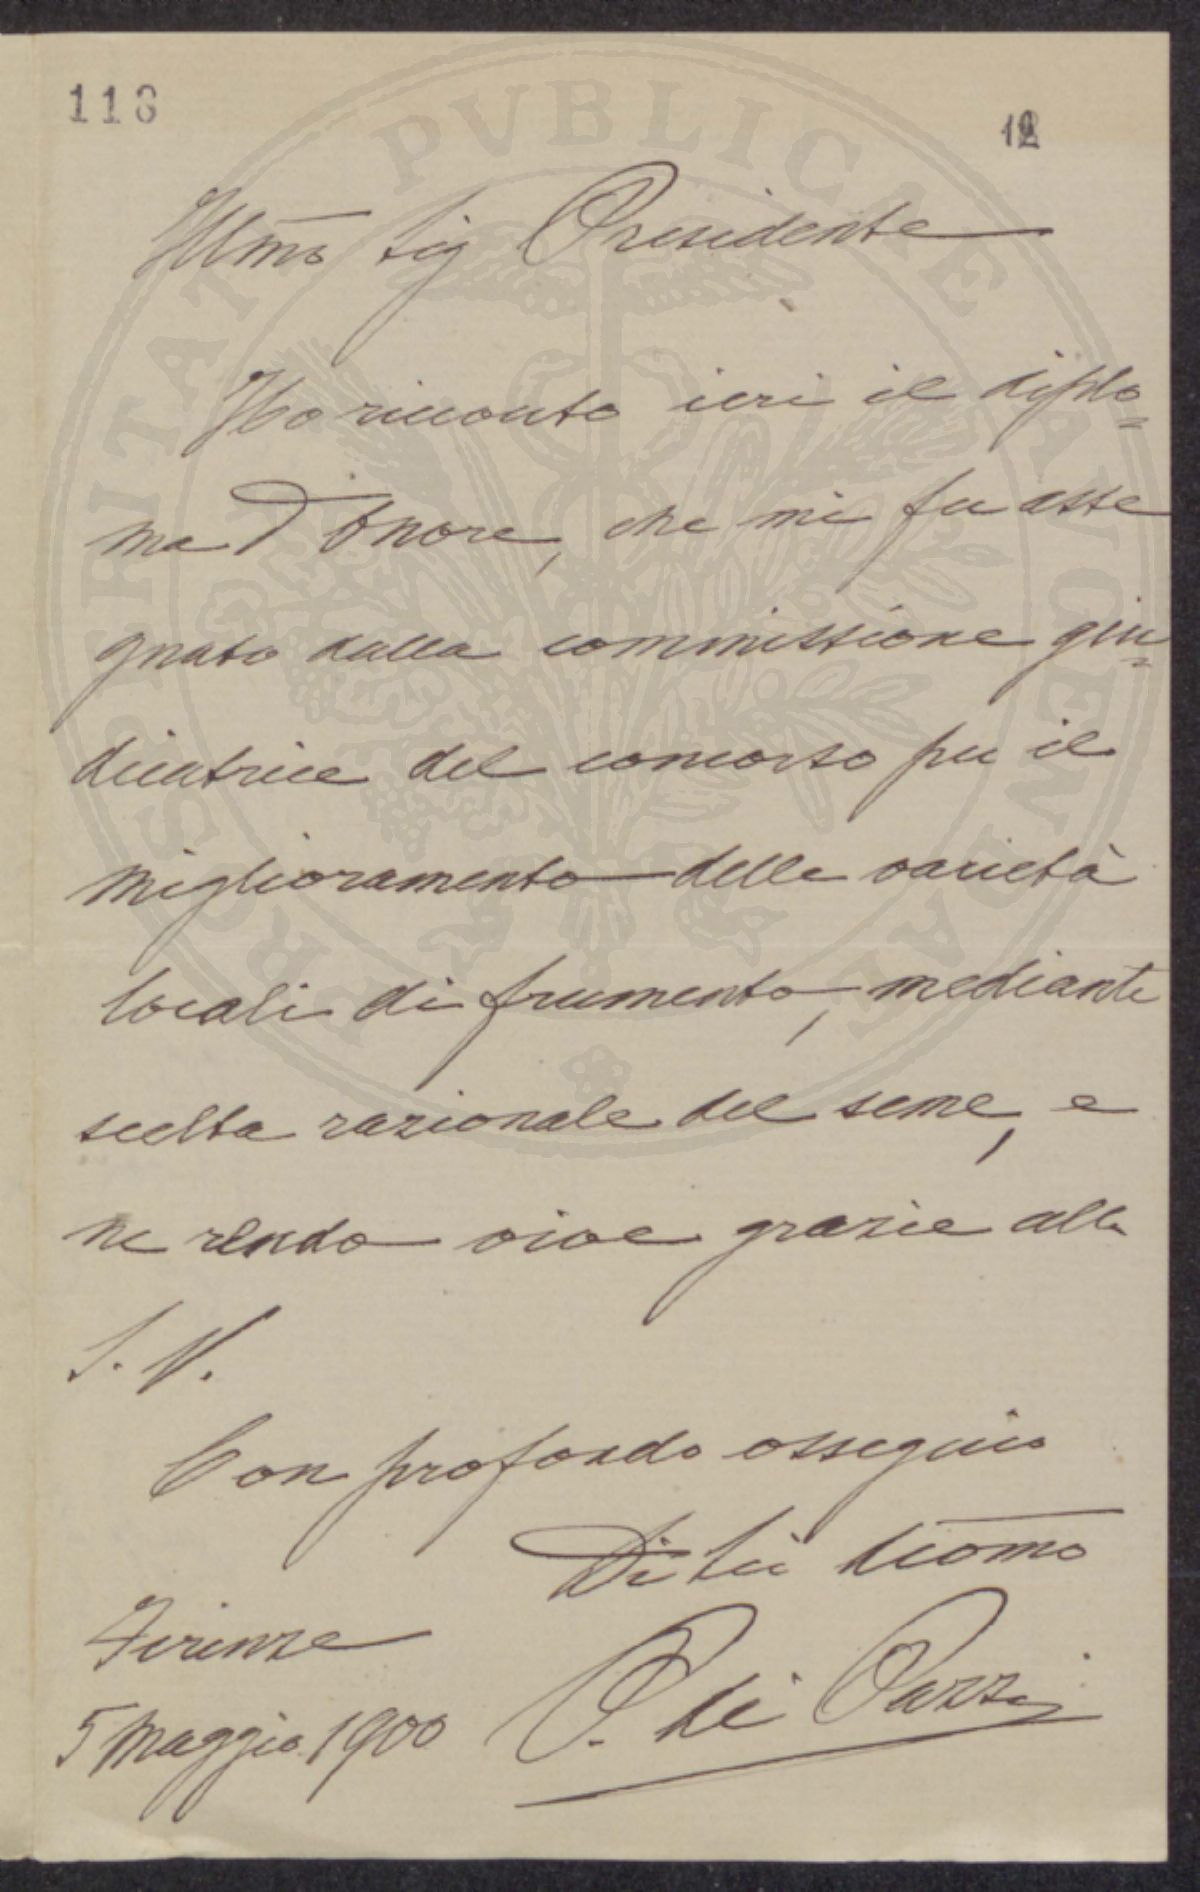 118
12
Illmo Sig Presidente
Ho ricevuto ieri il diplo=
ma d'Onore, che mi fu asse
gnato dalla commissione giu=
dicatrice del concorso per il
miglioramento delle varietà
locali di frumento, mediante
scelta razionale del seme, e
ne rendo vive grazie alla
S. V.
Con profondo ossequio
Di Lei devomo
Firenze
5 Maggio 1900
P. de Pazzi
PROSPERITATI PVBLICAE AVGENDAE